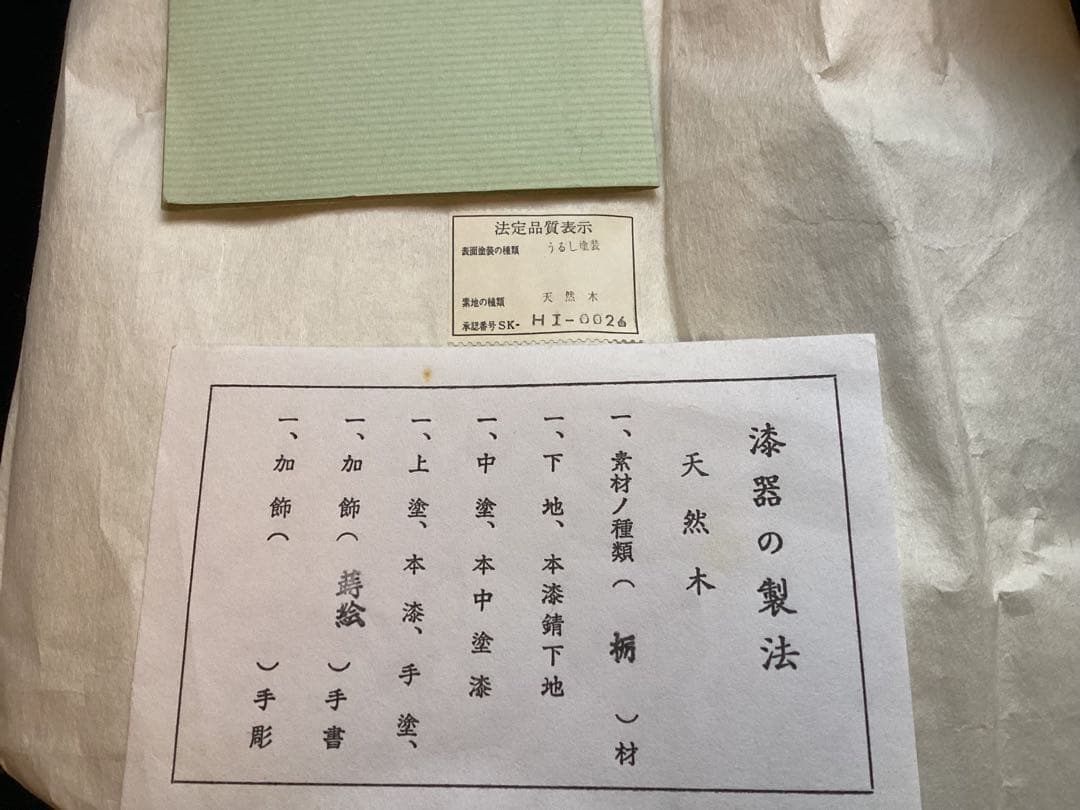 法定品質表示
表面塗装の種類 うるし塗装
素地の種類 天然木
承認番号SK- HI-0026
漆器の製法
天然木
一、素材ノ種類( 栃 )材
一、下地、本漆錆下地
一、中塗、本中塗漆
一、上塗、本漆、手塗、
一、加飾( 蒔絵 )手書
一、加飾( )手彫